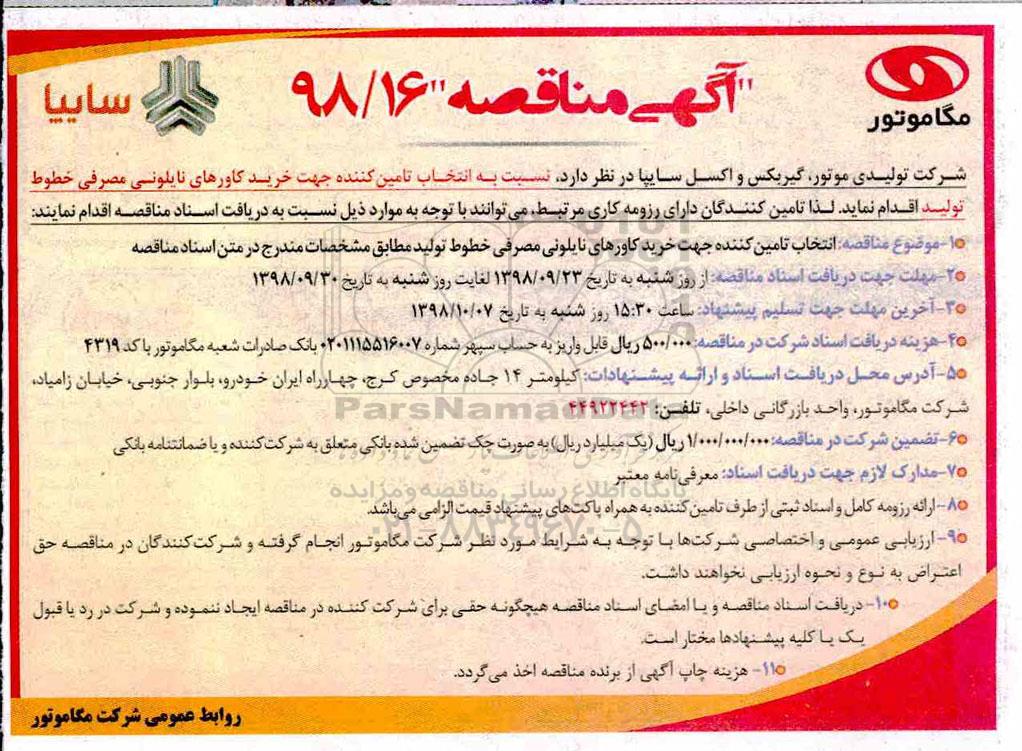 "آگهی مناقصه" ۹۸/۱۶
مگاموتور
سایپا
شرکت تولیدی موتور، گیربکس و اکسل سایپا در نظر دارد، نسبت به انتخاب تامین کننده جهت خرید کاورهای نایلونی مصرفی خطوط
تولید اقدام نماید. لذا تامین کنندگان دارای رزومه کاری مرتبط، می توانند با توجه به موارد ذیل نسبت به دریافت اسناد مناقصه اقدام نمایند:
۱- موضوع مناقصه: انتخاب تامین کننده جهت خرید کاورهای نایلونی مصرفی خطوط تولید مطابق مشخصات مندرج در متن اسناد مناقصه
۲- مهلت جهت دریافت اسناد مناقصه: از روز شنبه به تاریخ ۱۳۹۸/۰۹/۲۳ لغایت روز شنبه به تاریخ ۱۳۹۸/۰۹/۳۰
۳- آخرین مهلت جهت تسلیم پیشنهاد: ساعت ۱۵:۳۰ روز شنبه به تاریخ ۱۳۹۸/۱۰/۰۷
۴- هزینه دریافت اسناد شرکت در مناقصه: ۵۰۰/۰۰۰ ریال قابل واریز به حساب سپهر شماره ۰۲۰۱۱۱۵۵۱۶۰۰۷ بانک صادرات شعبه مگاموتور با کد ۴۳۱۹
۵- آدرس محل دریافت اسناد و ارائه پیشنهادات: کیلومتر ۱۴ جاده مخصوص کرج، چهارراه ایران خودرو، بلوار جنوبی، خیابان زامیاد،
شرکت مگاموتور، واحد بازرگانی داخلی، تلفن: ۴۴۹۲۲۴۴۲
ParsNamadData
۶- تضمین شرکت در مناقصه: ۱/۰۰۰/۰۰۰/۰۰۰ ریال (یک میلیارد ریال) به صورت چک تضمین شده بانکی متعلق به شرکت کننده و یا ضمانتنامه بانکی
۷- مدارک لازم جهت دریافت اسناد: معرفی نامه معتبر
پایگاه اطلاع رسانی مناقصه و مزایده
۸- ارائه رزومه کامل و اسناد ثبتی از طرف تامین کننده به همراه پاکت های پیشنهاد قیمت الزامی می باشد.
۰۲۱-۸۸۳۴۹۶۷۰-۵
۹- ارزیابی عمومی و اختصاصی شرکت ها با توجه به شرایط مورد نظر شرکت مگاموتور انجام گرفته و شرکت کنندگان در مناقصه حق
اعتراض به نوع و نحوه ارزیابی نخواهند داشت.
۱۰- دریافت اسناد مناقصه و یا امضای اسناد مناقصه هیچگونه حقی برای شرکت کننده در مناقصه ایجاد ننموده و شرکت در رد یا قبول
یک یا کلیه پیشنهادها مختار است.
۱۱- هزینه چاپ آگهی از برنده مناقصه اخذ می گردد.
روابط عمومی شرکت مگاموتور